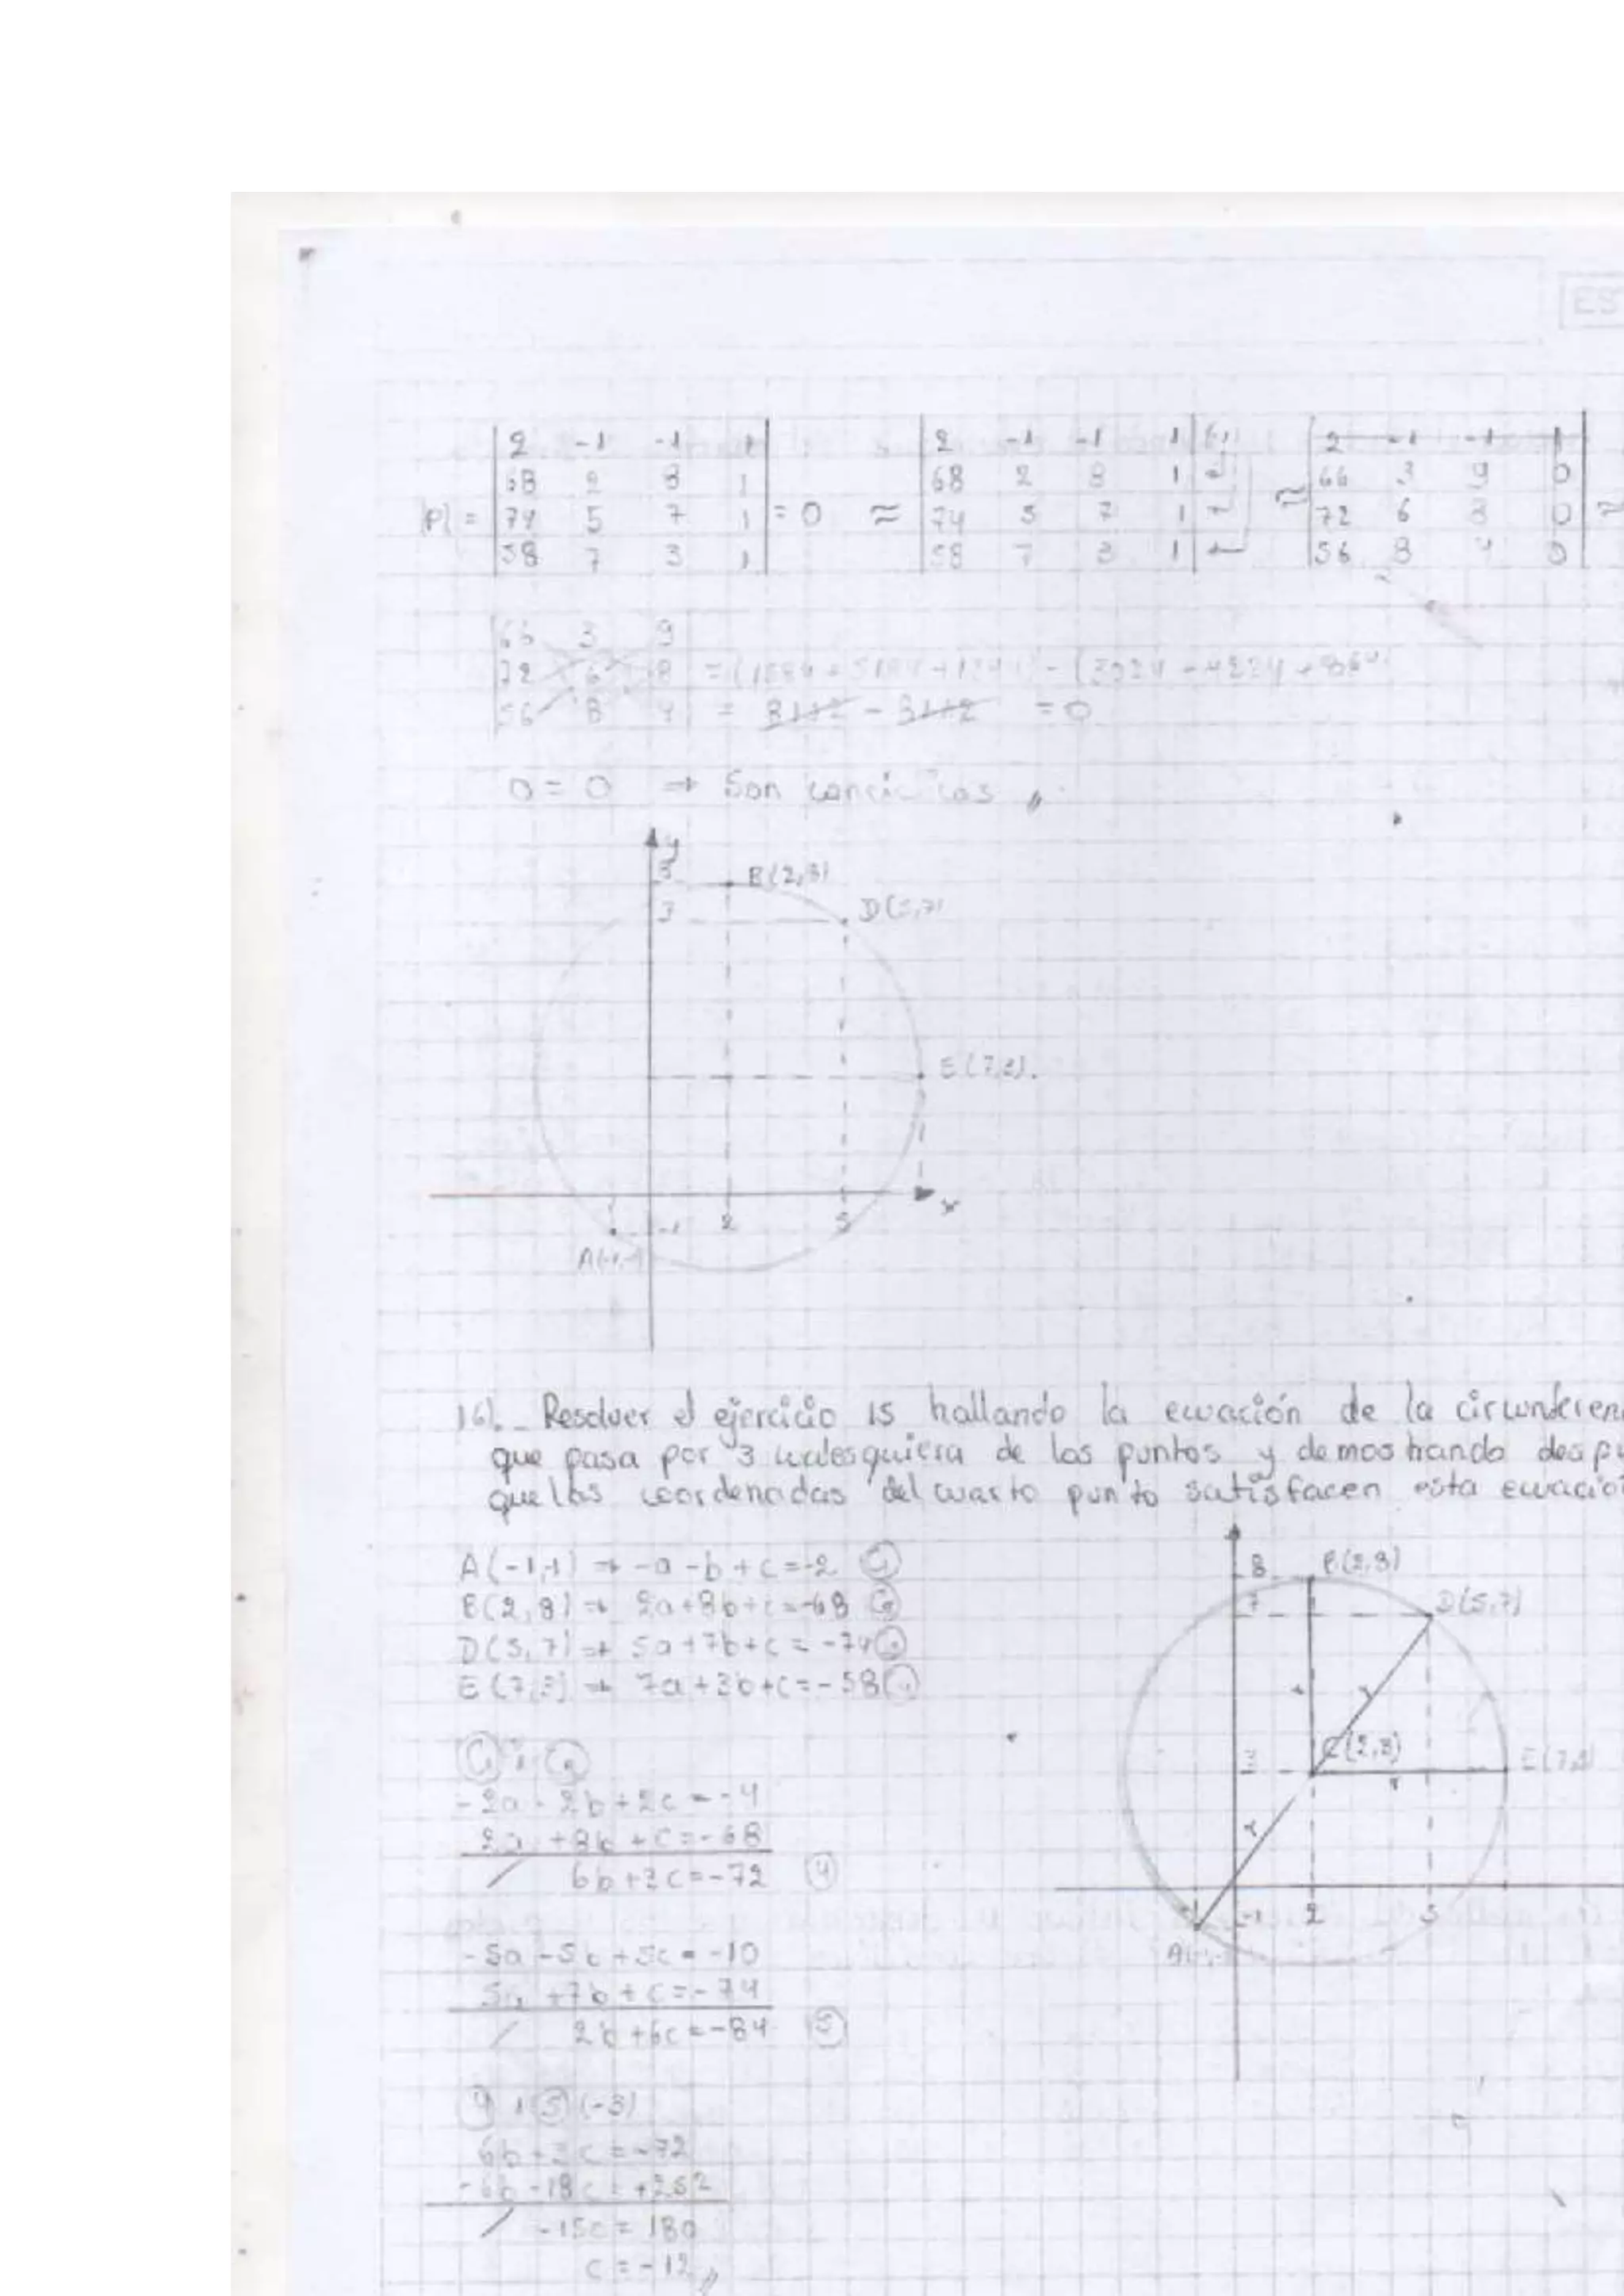 ES
|P| = | 2 -1 -1 1 | = 0 ≈ | 2 -1 -1 1 | ≈ | 2 -1 -1 1 | ≈
68 2 8 1 68 2 8 1 66 3 9 0
74 5 7 1 74 5 7 1 72 6 8 0
58 7 3 1 58 7 3 1 56 8 4 0
66 3 9
72 6 8 = (1584 + 5184 + 1344) - (3024 + 4224 + 864)
56 8 4 = 8112 - 8112 = 0
0 = 0 → Son
y
B(2,8)
D(5,7)
E(7,3).
x
-1 2 5
A(-1,-1)
16)._ Resolver el ejercicio 15 hallando la ecuación de la
que pasa por 3 cualesquiera de los puntos y demostrando
que las coordenadas del cuarto punto satisfacen esta
A(-1,-1) → -a-b+c=-2 ①
B(2,8) → 2a+8b+c=-68 ②
D(5,7) → 5a+7b+c=-74
E(7,3) → 7a+3b+c=-58
8 B(2,8)
7 D(5,7)
r r
3 C(2,3) E(7,3)
r r
-1 -1 2 5
①
-2a-2b+2c=-4
2a+8b+c=-68
6b+3c=-72 ④
-5a-5b+5c=-10
5a+7b+c=-74
2b+6c=-84 ⑤
④ ⑤ (-3)
6b+3c=-72
-6b-18c=+252
-15c=180
c=-12